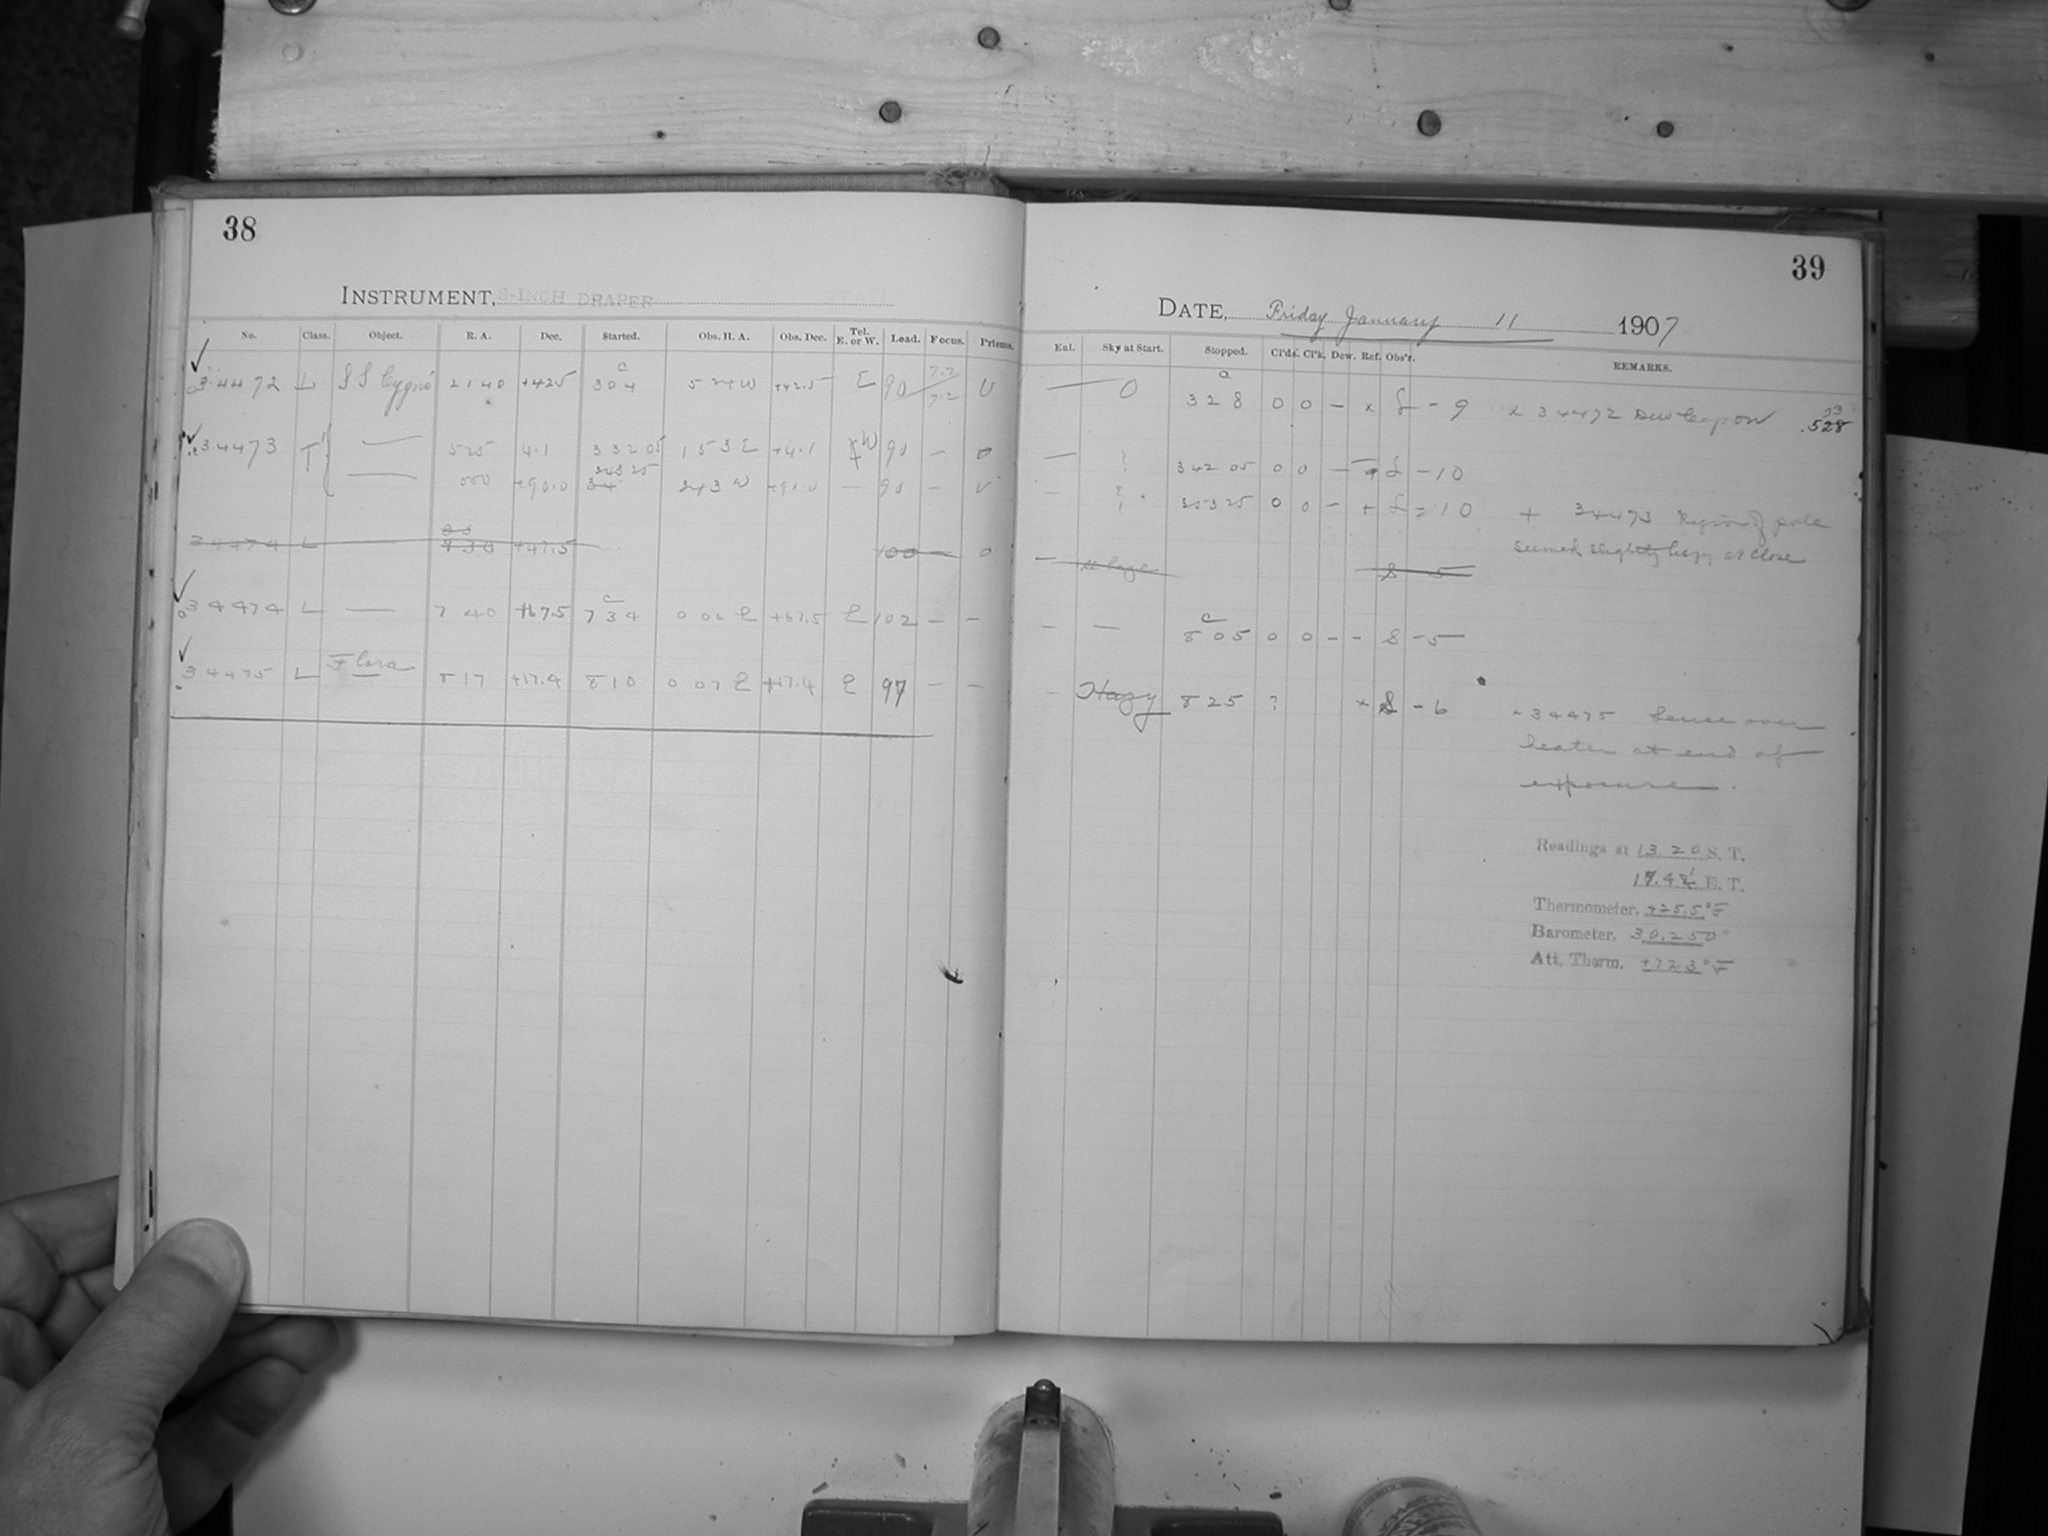 38
INSTRUMENT, 8-INCH DRAPER
No. Class. Object. R. A. Dec. Started. Obs. H. A. Obs. Dec. Tel. E. or W. Load. Focus. Prisms.
34472 L SS Cygni 2140 +42.5 304 524W +42.5 E 90
34473 T 525 4.1 33205 153E +4.1 W 90 – 0
000 +90.0 34325 243W +90.0 – 90 –
34474 L 930 +47.5 100 0
34474 L — 7 40 +67.5 734 0 06 E +67.5 E 102 – –
34475 L Flora 817 +17.4 810 0 07 E +17.4 E 97 – –
39
DATE, Friday January 11 1907
Enl. Sky at Start. Stopped. Cl'ds. Cl'k. Dew. Ref. Obs'r. REMARKS.
— 0 328 0 0 – x – 9 x 34472 Dew Cap on .528
— ? 342 05 0 0 – – 10
35325 0 0 – + – 10 + 34473 Region of pole
seemed slightly hazy at close
S 5
— — 805 0 0 – – S – 5
– Hazy 825 ? x S – 6 x 34475 Sense over
heater at end of
exposure.
Readings at 13.20 S. T.
E. T.
Thermometer, +25.5°F
Barometer, 30.250"
Att. Therm. +72.3°F